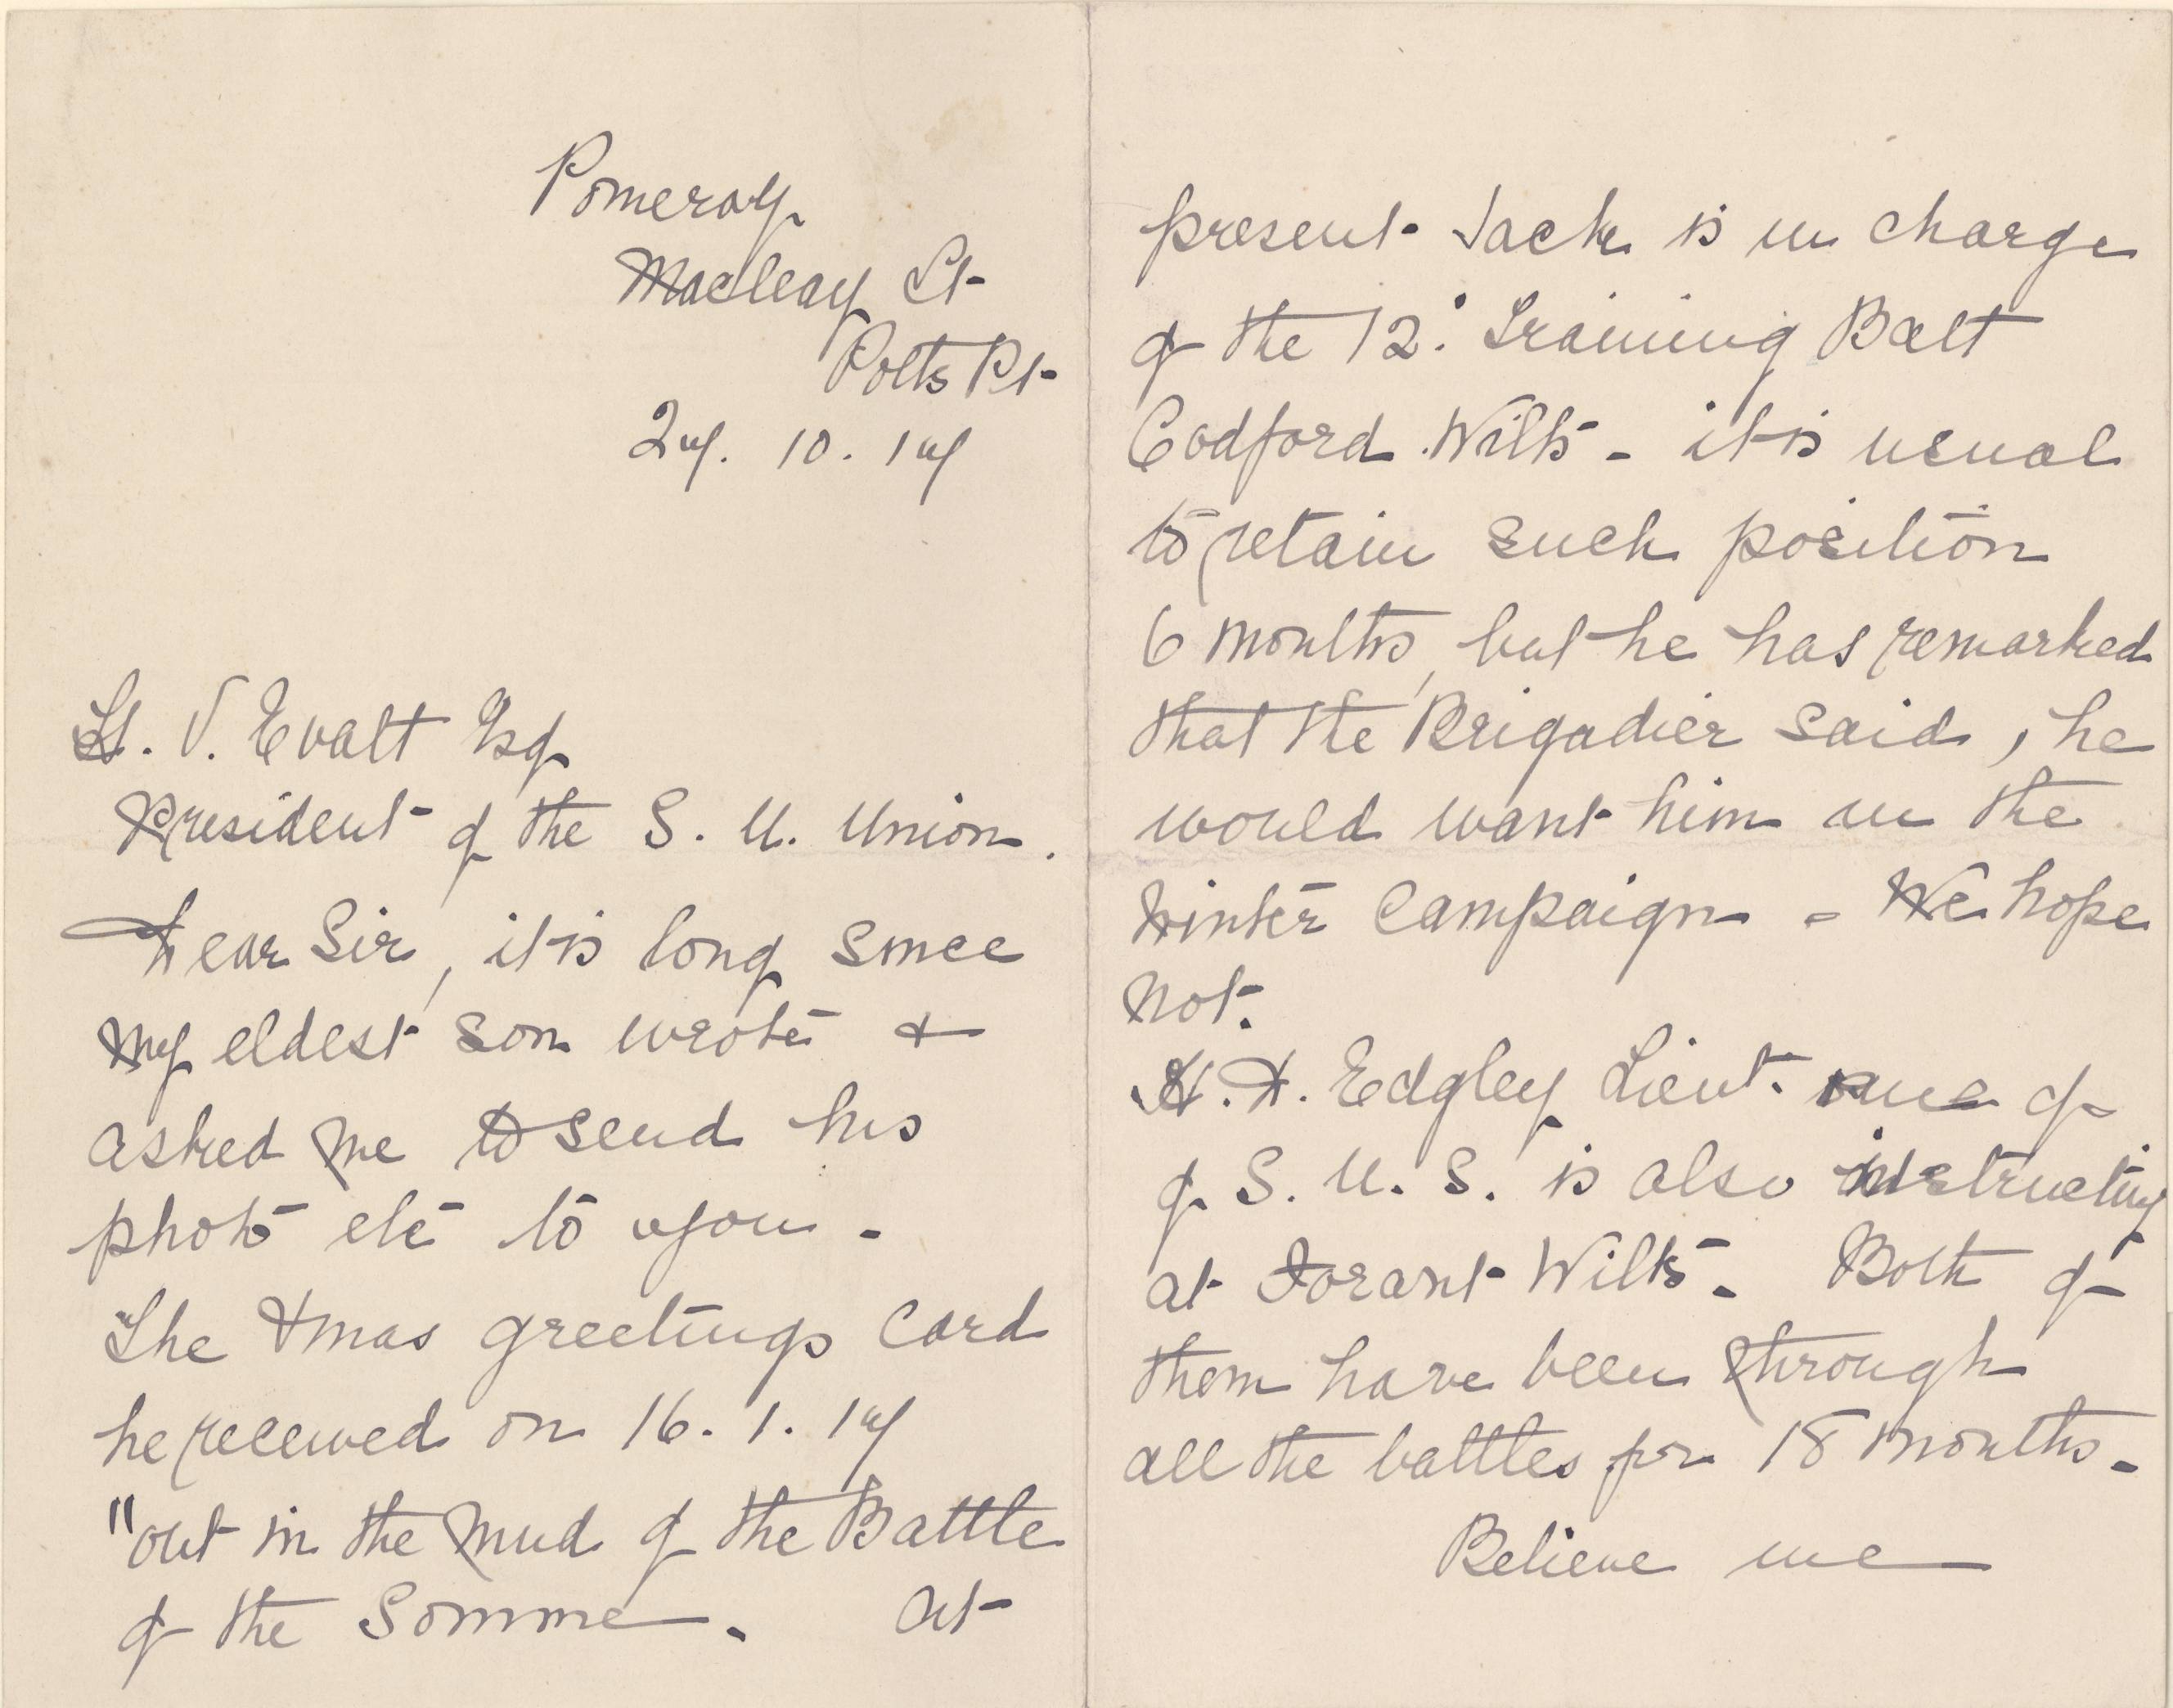 Pomeroy
Macleay St
Potts Pt
27. 10. 17
H. V. Evatt Esq
President of the S. U. Union.
Dear Sir, it is long since
my eldest son wrote &
asked me to send his
photo etc to you -
The Xmas greetings card
he received on 16. 1. 17
"out in the mud of the Battle
of the Somme. At
present Jack is in charge
of the 12: Training Batt
Codford Wilts - it is usual
to retain such position
6 months, but he has remarked
that the Brigadier said, he
would want him in the
Winter Campaign - We hope
not.
Edgley Lieut. one of
of S. U. S. is also instructing
at Forant Wilts - Both of
them have been through
all the battles for 18 months -
Believe me